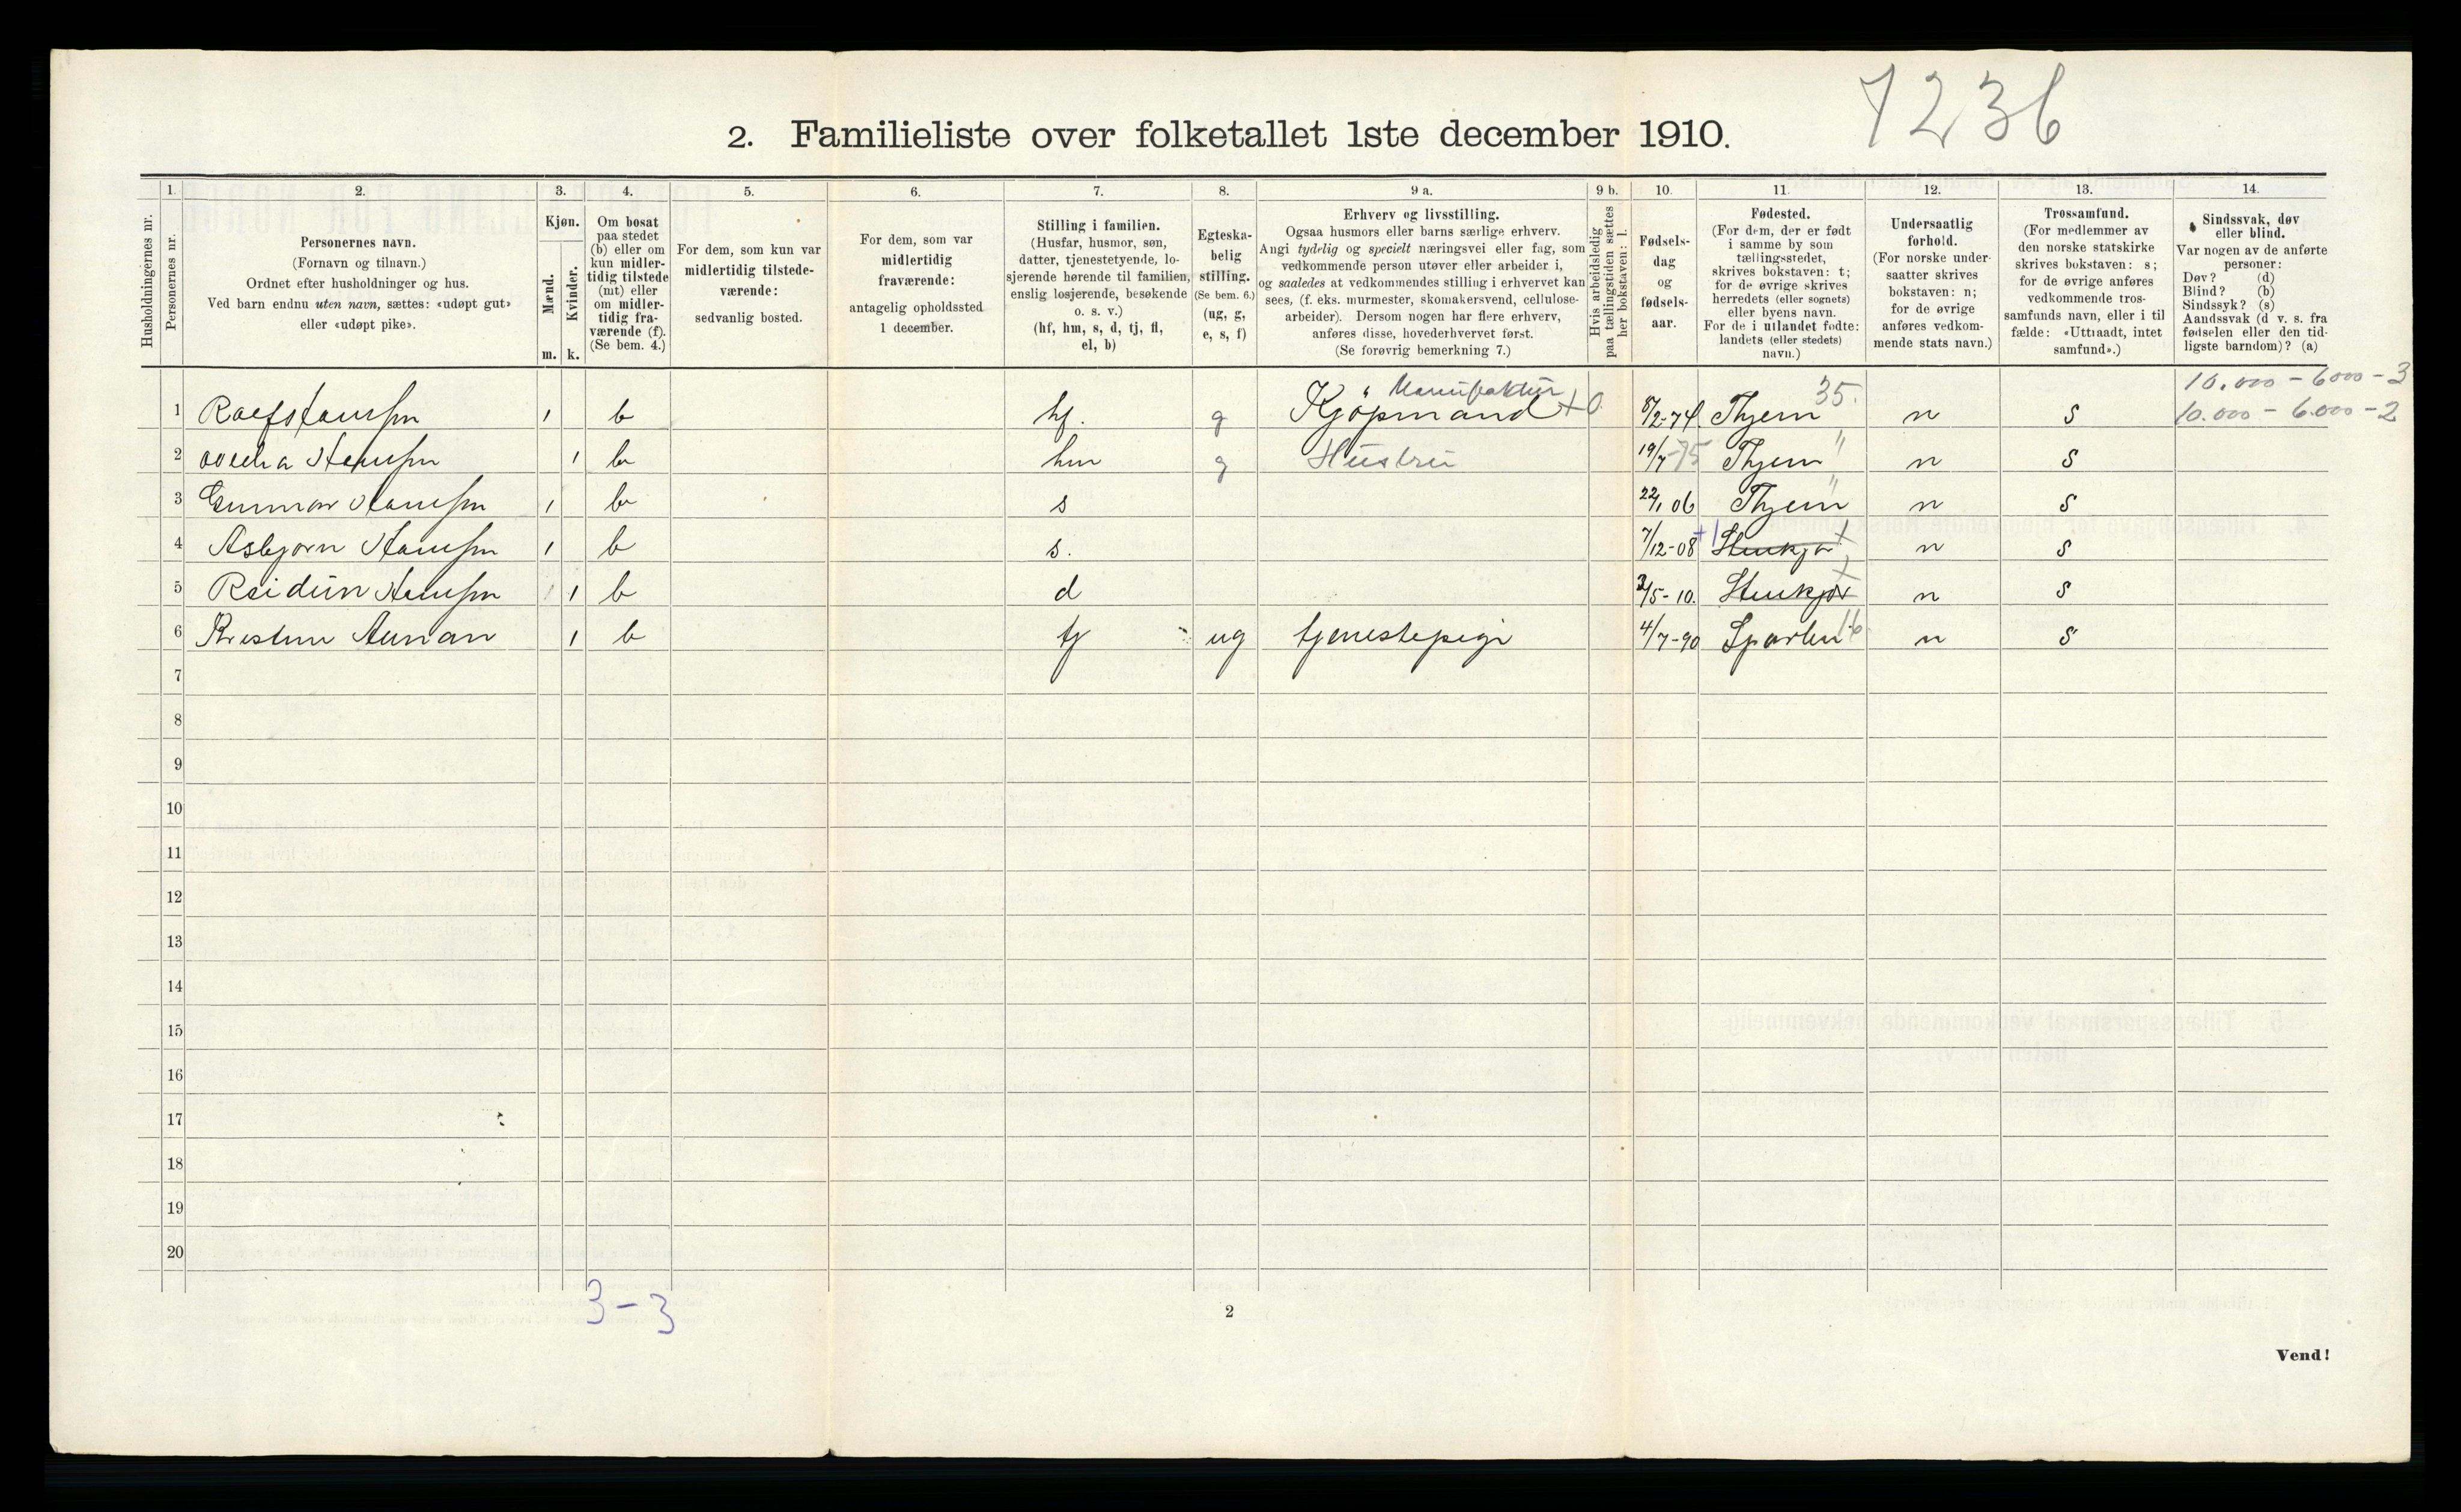 7236
2. Familieliste over folketallet 1ste december 1910.
1. 2. 3. 4. 5. 6. 7. 8. 9 a. 9 b. 10. 11. 12. 13. 14.
Husholdningernes nr.
Personernes nr.
Personernes navn.
(Fornavn og tilnavn.)
Ordnet efter husholdninger og hus.
Ved barn endnu uten navn, sættes: «udøpt gut»
eller «udøpt pike».
Kjøn.
Mænd.
Kvinder.
m. k.
Om bosat
paa stedet
(b) eller om
kun midler-
tidig tilstede
(mt) eller
om midler-
tidig fra-
værende (f).
(Se bem. 4.)
For dem, som kun var
midlertidig tilstede-
værende:
sedvanlig bosted.
For dem, som var
midlertidig
fraværende:
antagelig opholdssted
1 december.
Stilling i familien.
(Husfar, husmor, søn,
datter, tjenestetyende, lo-
sjerende hørende til familien,
enslig losjerende, besøkende
o. s. v.)
(hf, hm, s, d, tj, fl,
el, b)
Egteska-
belig
stilling.
(Se bem. 6.)
(ug, g,
e, s, f)
Erhverv og livsstilling.
Ogsaa husmors eller barns særlige erhverv.
Angi tydelig og specielt næringsvei eller fag, som
vedkommende person utøver eller arbeider i,
og saaledes at vedkommendes stilling i erhvervet kan
sees, (f. eks. murmester, skomakersvend, cellulose-
arbeider). Dersom nogen har flere erhverv,
anføres disse, hovederhvervet først.
(Se forøvrig bemerkning 7.)
Hvis arbeidsledig
paa tællingstiden sættes
her bokstaven: l.
Fødsels-
dag
og
fødsels-
aar.
Fødested.
(For dem, der er født
i samme by som
tællingsstedet,
skrives bokstaven: t;
for de øvrige skrives
herredets (eller sognets)
eller byens navn.
For de i utlandet fødte:
landets (eller stedets)
navn.)
Undersaatlig
forhold.
(For norske under-
saatter skrives
bokstaven: n;
for de øvrige
anføres vedkom-
mende stats navn.)
Trossamfund.
(For medlemmer av
den norske statskirke
skrives bokstaven: s;
for de øvrige anføres
vedkommende tros-
samfunds navn, eller i til
fælde: «Uttraadt, intet
samfund».)
Sindssvak, døv
eller blind.
Var nogen av de anførte
personer:
Døv? (d)
Blind? (b)
Sindssyk? (s)
Aandssvak (d v. s. fra
fødselen eller den tid-
ligste barndom)? (a)
Manufaktur 35. 10.000 - 6000 - 3
1 1 b hf. g Kjöpmand + 0. 8/2-74. n s 10.000 - 6.000 - 2
2 1 b hm g Hustru 19/7-75 " n s
3 Gunnar 1 b s 22/1 06 " n s
4 Asbjørn 1 b s. 7/12-08 +1 Stenkjær + n s
5 Reidun 1 b d /5-10. Stenkjær + n s
6 Aunan 1 b tj ug tjenestepige 4/7-90 Sparbu 16 n s
7
8
9
10
11
12
13
14
15
16
17
18
19
20
3-3
2
Vend!